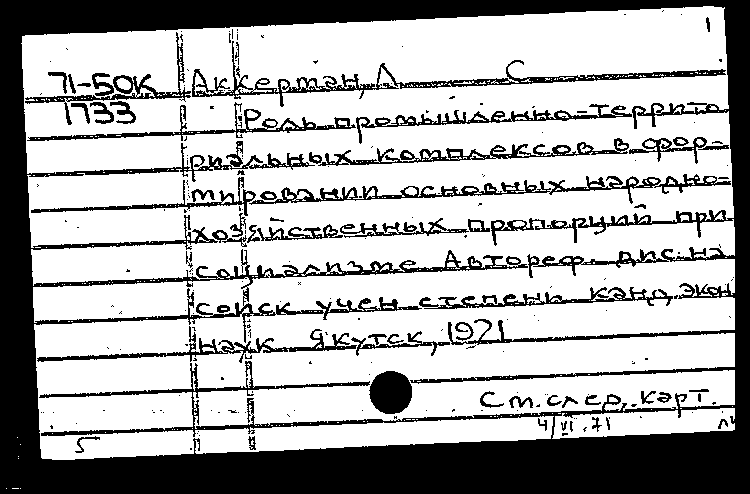 1
71-50К Аккерман, Л С
1733 Роль промышленно-террито
риальных комплексов в фор-
мировании основных народно-
хозяйственных пропорций при
социализме Автореф. дис. на
соиск учен степени канд, экон
наук Якутск, 1971
См. след. карт.
5 4/VI.71